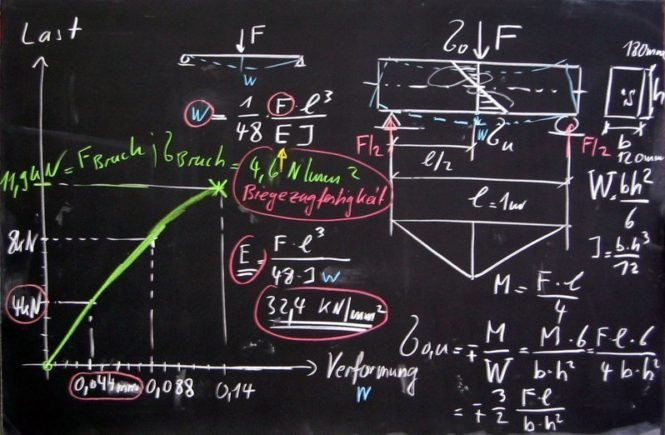 Last
F
w
w = 1/48 · F · l³ / E J
11,9 kN = F Bruch ; σ Bruch = 4,6 N/mm²
Biegezugfestigkeit
8kN
4kN
E = F · l³ / 48 · J w
32,4 KN/mm²
0,044mm 0,088 0,14
Verformung
w
σo F
w σu
F/2 F/2
l/2
l = 1m
M = F · l / 4
·s h
b
120mm
W = bh² / 6
J = b·h³ / 12
σo,u = ∓ M / W = M · 6 / b·h² = F · l · 6 / 4 b·h²
= ∓ 3/2 F·l / b·h²